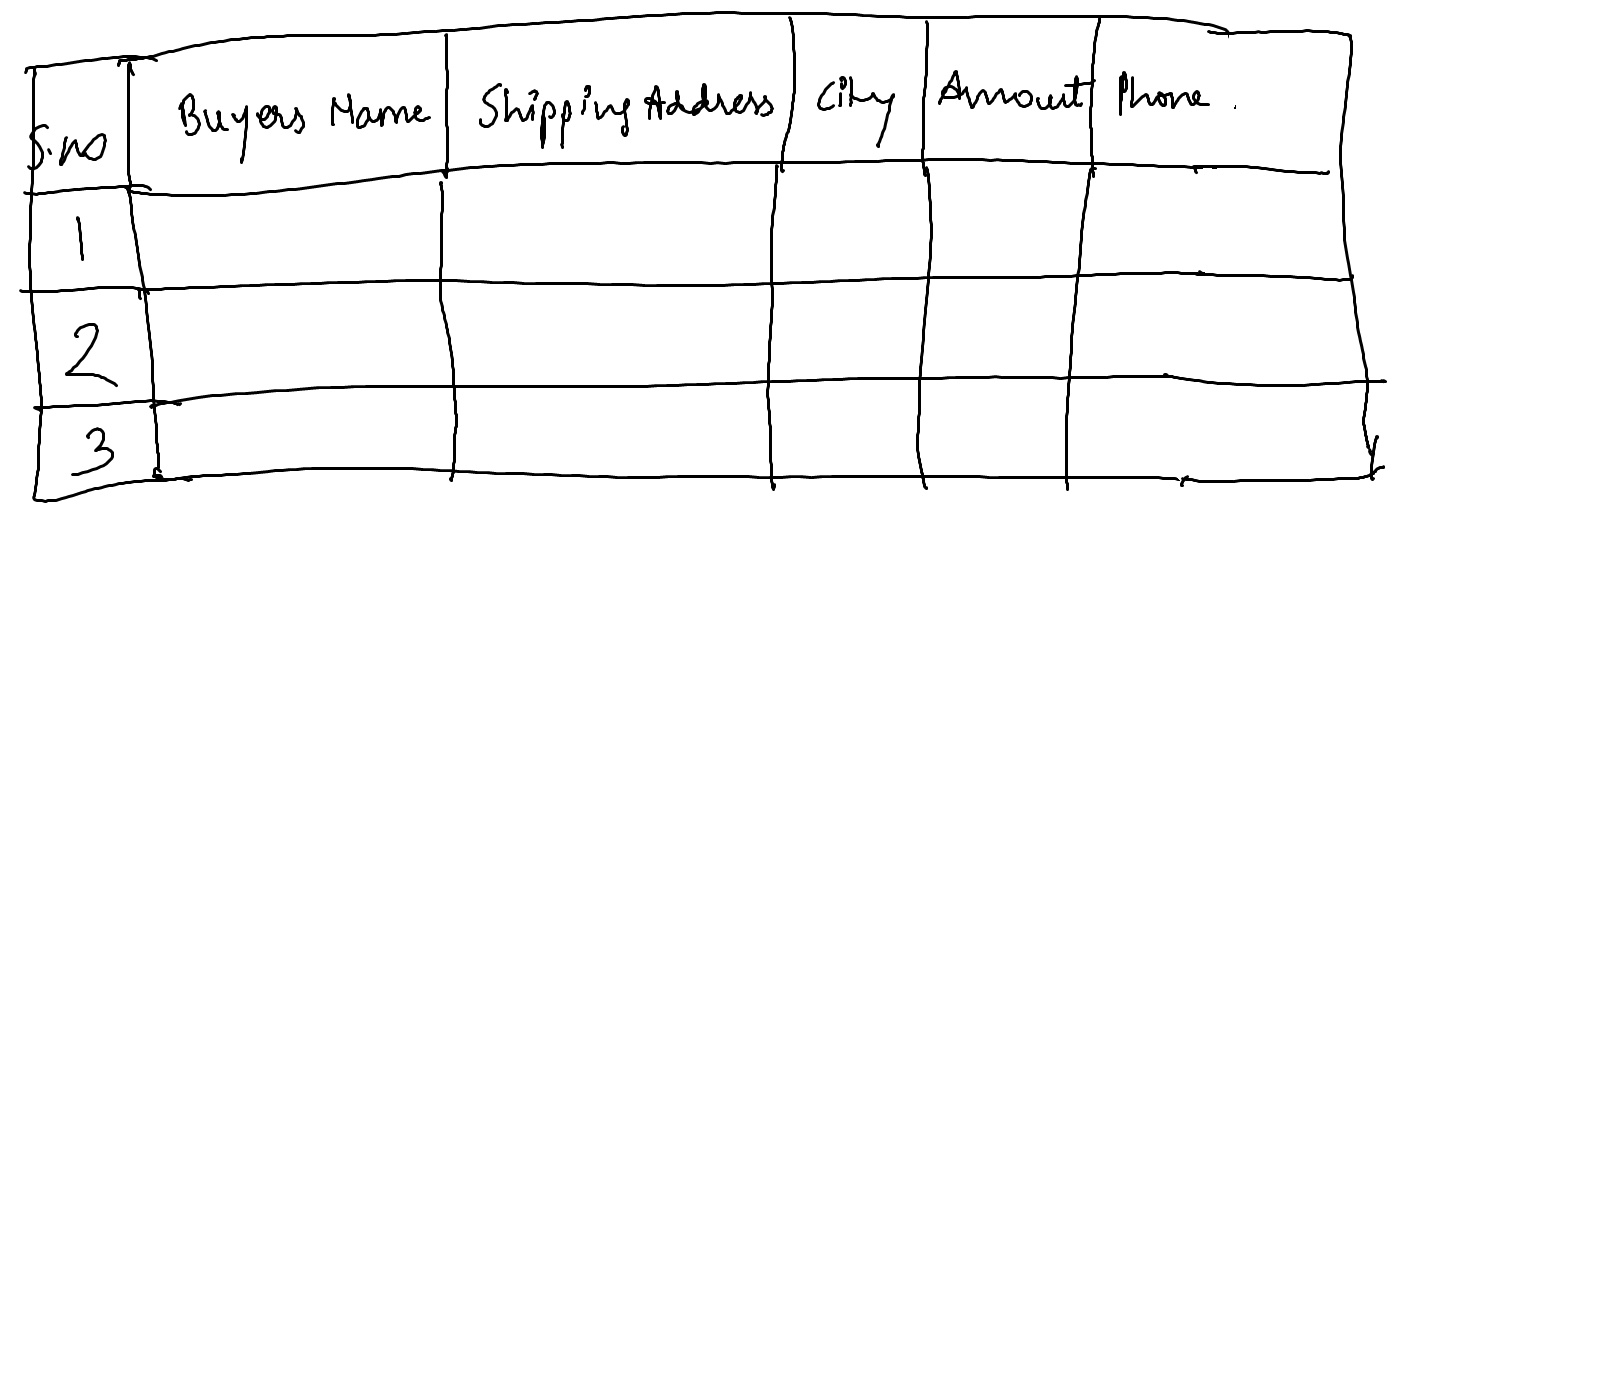 S.no Buyers Name Shipping Address City Amount Phone.
1
2
3